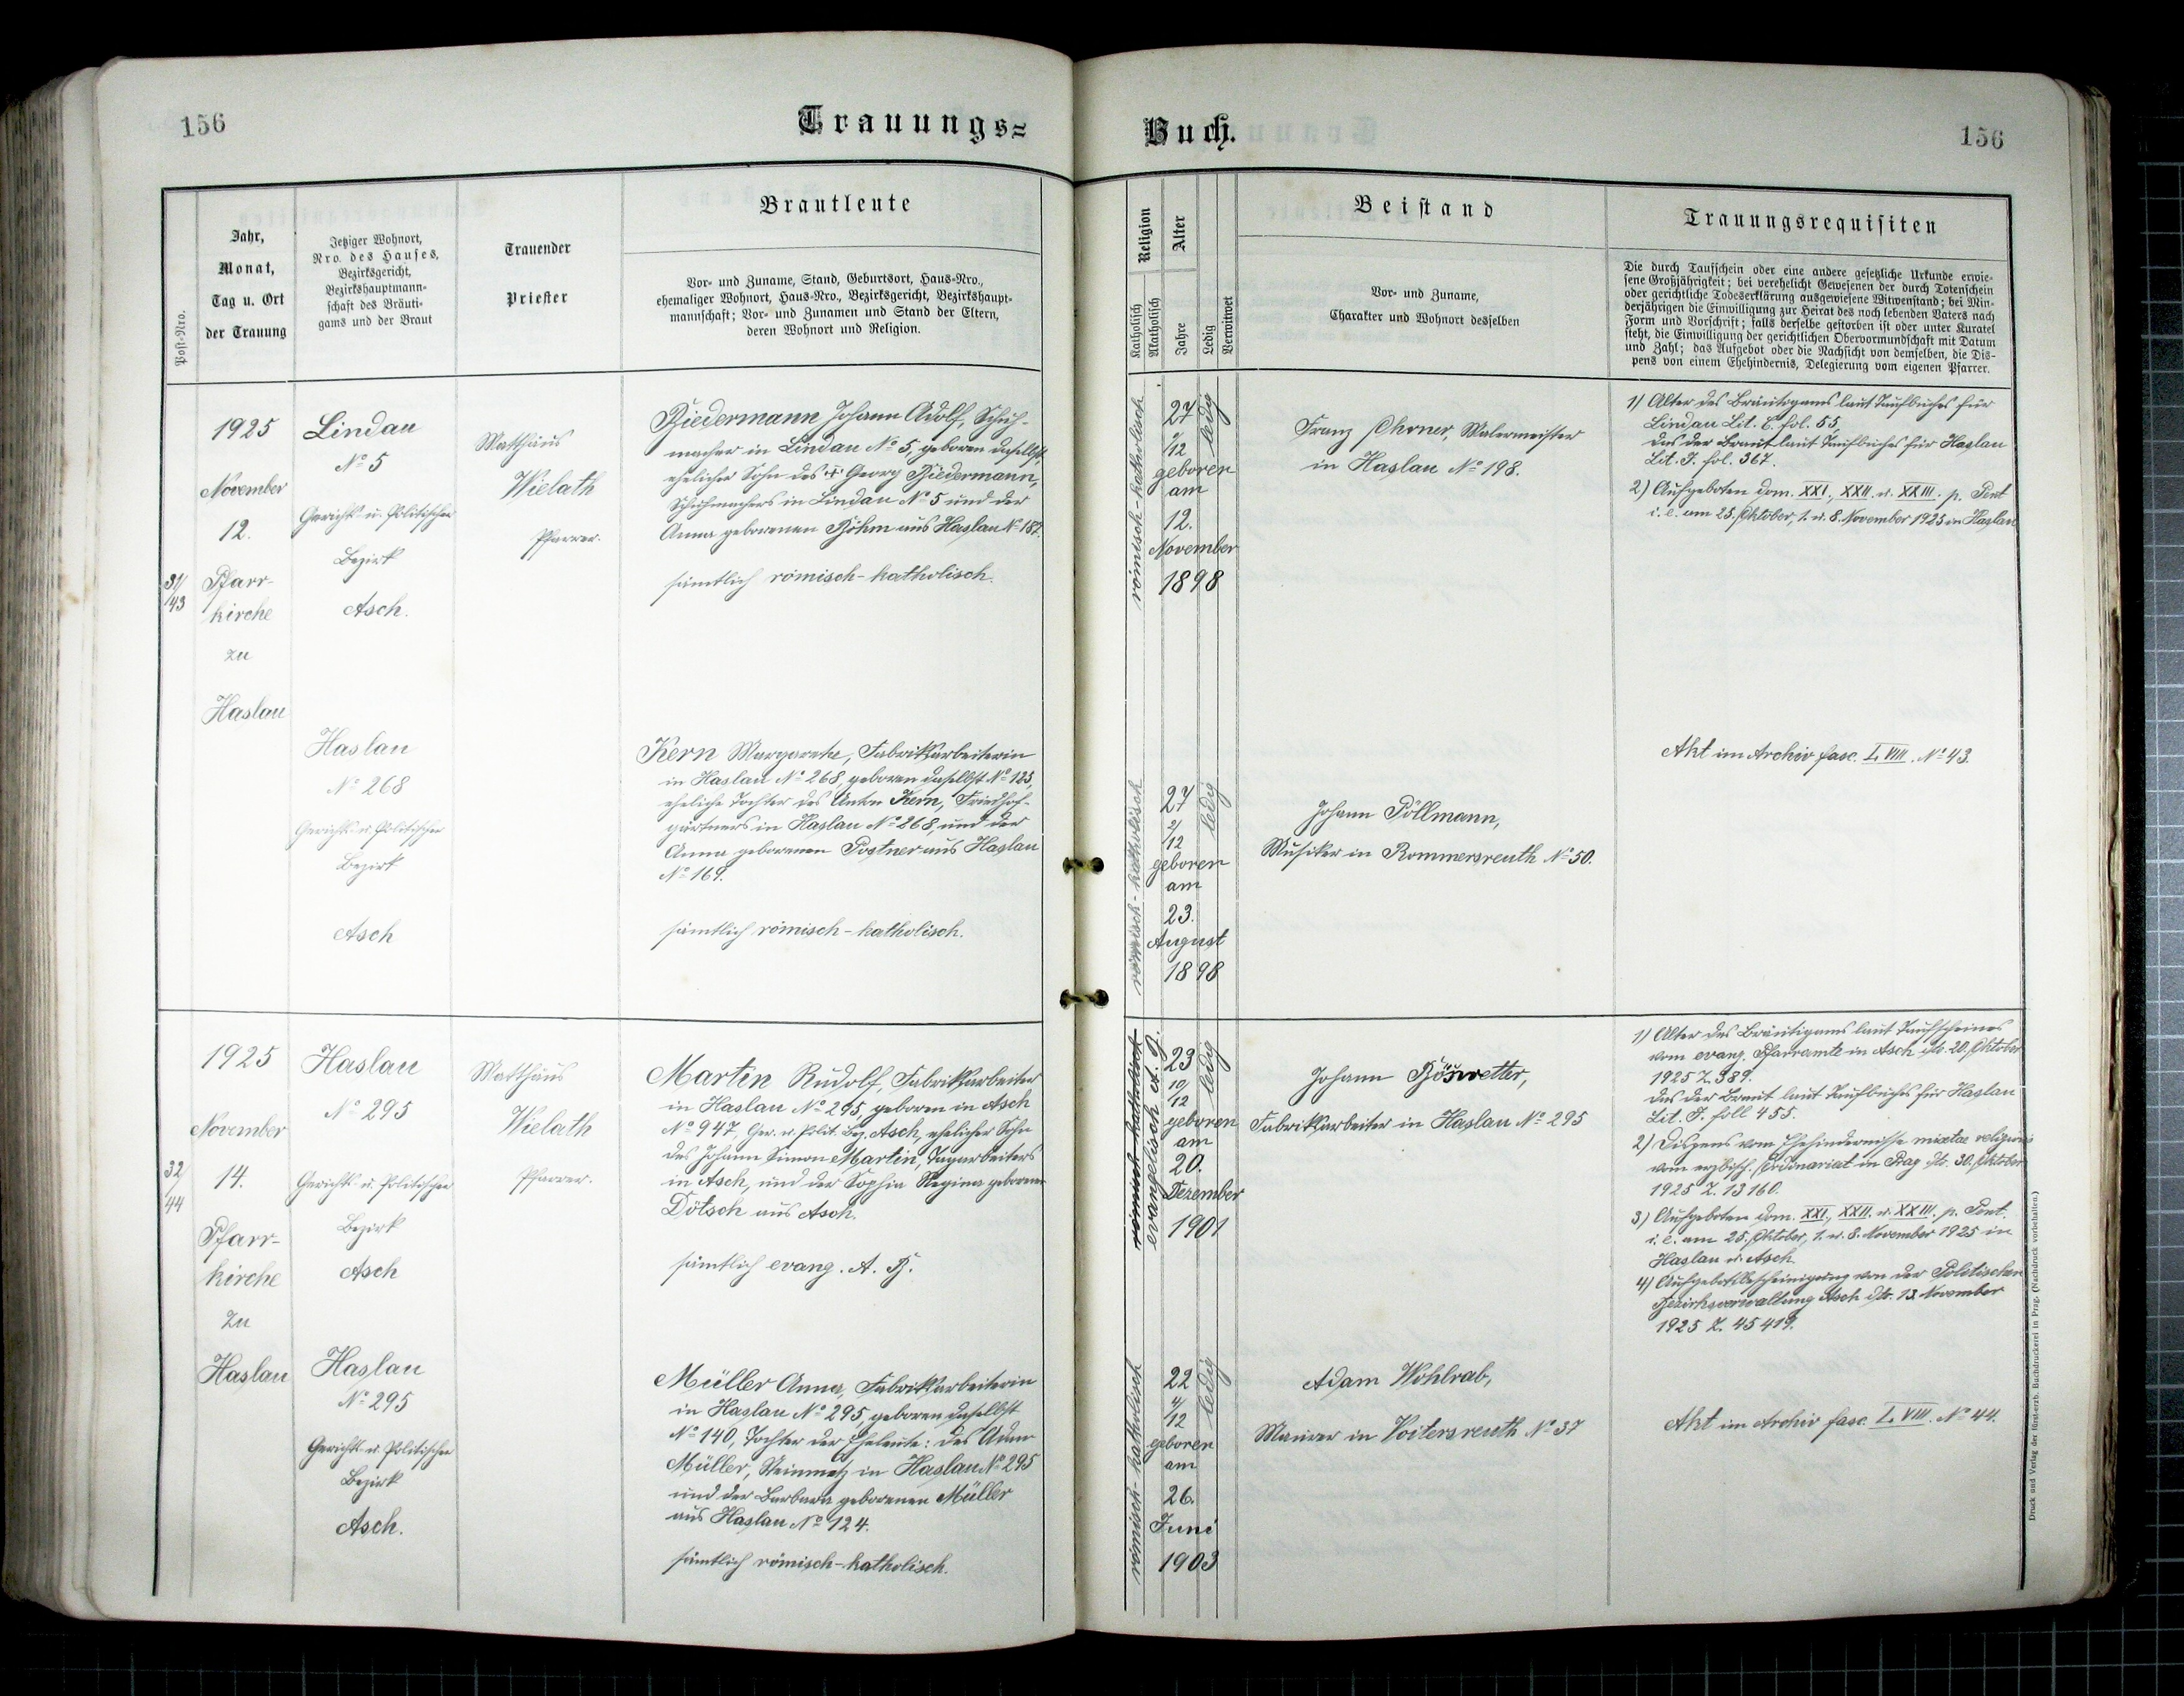 156
Trauungs=
Buch.
156
Post-Nro.
Jahr,
Monat,
Tag u. Ort
der Trauung
Jetziger Wohnort,
Nro. des Hauses,
Bezirksgericht,
Bezirkshauptmann-
schaft des Bräuti-
gams und der Braut
Trauender
Priester
Brautleute
Vor- und Zuname, Stand, Geburtsort, Haus-Nro.,
ehemaliger Wohnort, Haus-Nro., Bezirksgericht, Bezirkshaupt-
mannschaft; Vor- und Zunamen und Stand der Eltern,
deren Wohnort und Religion.
Religion
Katholisch
Akatholisch
Alter
Jahre
Ledig
Verwitwet
Beistand
Vor- und Zuname,
Charakter und Wohnort desselben
Trauungsrequisiten
Die durch Taufschein oder eine andere gesetzliche Urkunde erwie-
sene Großjährigkeit; bei verehelicht Gewesenen der durch Totenschein
oder gerichtliche Todeserklärung ausgewiesene Witwenstand; bei Min-
derjährigen die Einwilligung zur Heirat des noch lebenden Vaters nach
Form und Vorschrift; falls derselbe gestorben ist oder unter Kuratel
steht, die Einwilligung der gerichtlichen Obervormundschaft mit Datum
und Zahl; das Aufgebot oder die Nachsicht von demselben, die Dis-
pens von einem Ehehindernis, Delegierung vom eigenen Pfarrer.
31/
43
1925
November
12.
Pfarr-
kirche
zu
Haslau
Lindau
No 5
Gerichts- u. Politischer
Bezirk
Asch.
Matthäus
Wielath
Pfarrer.
Biedermann Johann Adolf, Schuh-
macher in Lindau No 5, geboren daselbst,
ehelicher Sohn des † Georg Biedermann,
Schuhmachers in Lindau No 5 und der
Anna geborenen Böhm aus Haslau No 187.
sämtlich römisch-katholisch.
römisch-katholisch
27
/12
geboren
am
12.
November
1898
ledig
Franz
Malermeister
in Haslau No 198.
1) Alter des Bräutigams laut Taufbuches für
Lindau Lit. C. fol. 55.
das der Braut laut Taufbuches für Haslau
Lit. J. fol. 367.
2) Aufgeboten dom. XXI., XXII. u. XXIII. p. Pent
i. e. am 25. Oktober, 1. u. 8. November 1925 in Haslau
Haslau
No 268
Gerichts- u. Politischer
Bezirk
Asch
Kern Margarete, Fabriksarbeiterin
in Haslau No 268, geboren daselbst No 125,
eheliche Tochter des Anton Kern, Friedhof-
gärtners in Haslau No 268, und der
Anna geborenen Postner aus Haslau
No 169.
sämtlich römisch-katholisch.
römisch-katholisch
27
2/12
geboren
am
23.
August
1898
ledig
Johann Pöllmann,
Musiker in Rommersreuth No 50.
Akt im Archiv fasc. LVIII. No 43.
32/
44
1925
November
14.
Pfarr-
kirche
zu
Haslau
Haslau
No 295
Gerichts- u. Politischer
Bezirk
Asch
Matthäus
Wielath
Pfarrer.
Martin Rudolf, Fabriksarbeiter
in Haslau No 295, geboren in Asch
No 947, Ger. u. Polit. Bez. Asch, ehelicher Sohn
des Johann Simon Martin, Tagarbeiters
in Asch, und der Sophia Regina geborenen
Dötsch aus Asch.
sämtlich evang. A. B.
römisch-katholisch
evangelisch A. B.
23
10/12
geboren
am
20.
Dezember
1901
ledig
Johann Böswetter,
Fabriksarbeiter in Haslau No 295
1) Alter des Bräutigams laut Taufscheines
vom evang. Pfarramte in Asch dto. 20. Oktober
1925 Z. 389.
das der Braut laut Taufbuches für Haslau
Lit. J. foll 455.
2) Dispens vom Ehehindernisse mixtae religionis
vom erzbisch. Ordinariat in Prag dto. 30. Oktober
1925 Z. 13160.
3) Aufgeboten dom. XXI., XXII. u. XXIII. p. Pent.
i. e. am 25. Oktober, 1. u. 8. November 1925 in
Haslau u. Asch.
4) Aufgebotsbescheinigung von der Politischen
Bezirksverwaltung Asch dto. 13. November
1925 Z. 45419.
Haslau
No 295
Gerichts u. Politischer
Bezirk
Asch.
Müller Anna, Fabriksarbeiterin
in Haslau No 295, geboren daselbst
No 140, Tochter der Eheleute: des Adam
Müller, Steinmetz in Haslau No 295
und der Barbara geborenen Müller
aus Haslau No 124.
sämtlich römisch-katholisch.
römisch-katholisch
22
4/12
geboren
am
26.
Juni
1903
ledig
Adam Wohlrab,
Maurer in Voitersreuth No 37
Akt im Archiv fasc. LVIII. No 44.
Druck und Verlag der fürst-erzb. Buchdruckerei in Prag. (Nachdruck vorbehalten.)